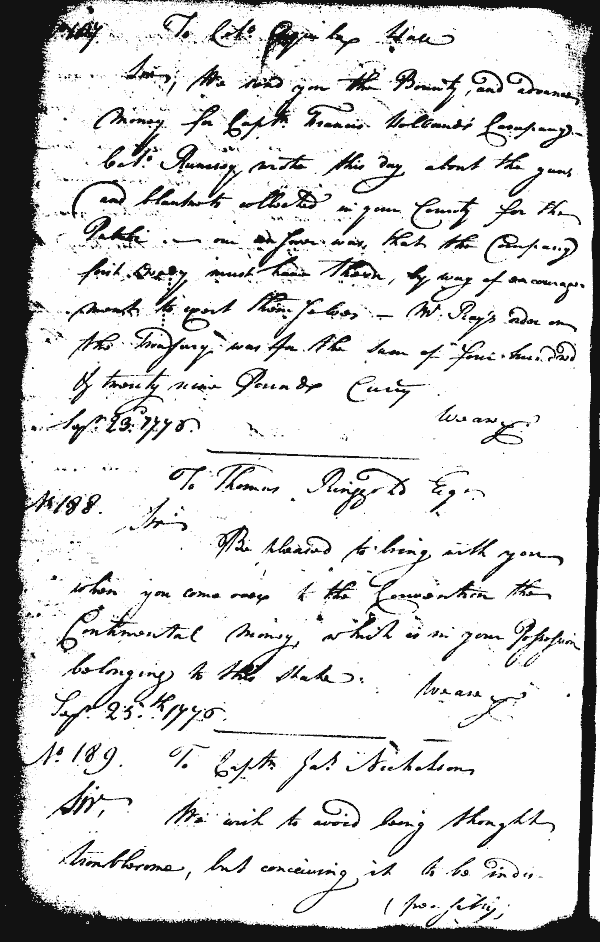 187 To Colo. Aquila Hall
Sir, We send you the Bounty, and advance
Money for Capt. Francis Holland's Company.
Colo. Rumsey wrote this day about the guns
and blankets collected in your County for the
Public — our answer was, that the Company
first ready must have them, by way of encourage-
ment to exert themselves — Mr. Ray's order on
the Treasury was for the sum of four hundred
& twenty nine Pounds Curcy
We are &c.
Sept. 23d. 1776.
To Thomas Ringgold Esqr.
No. 188.
Sir
Be pleased to bring with you
when you come over to the Convention the
Continental Money, which is in your Possession
belonging to this State.
We are &c.
Sept. 23.th 1776.
No. 189. To Captn. Jas. Nicholson
Sir, We wish to avoid being thought
troublesome, but conceiving it to be indis-
(pensibly